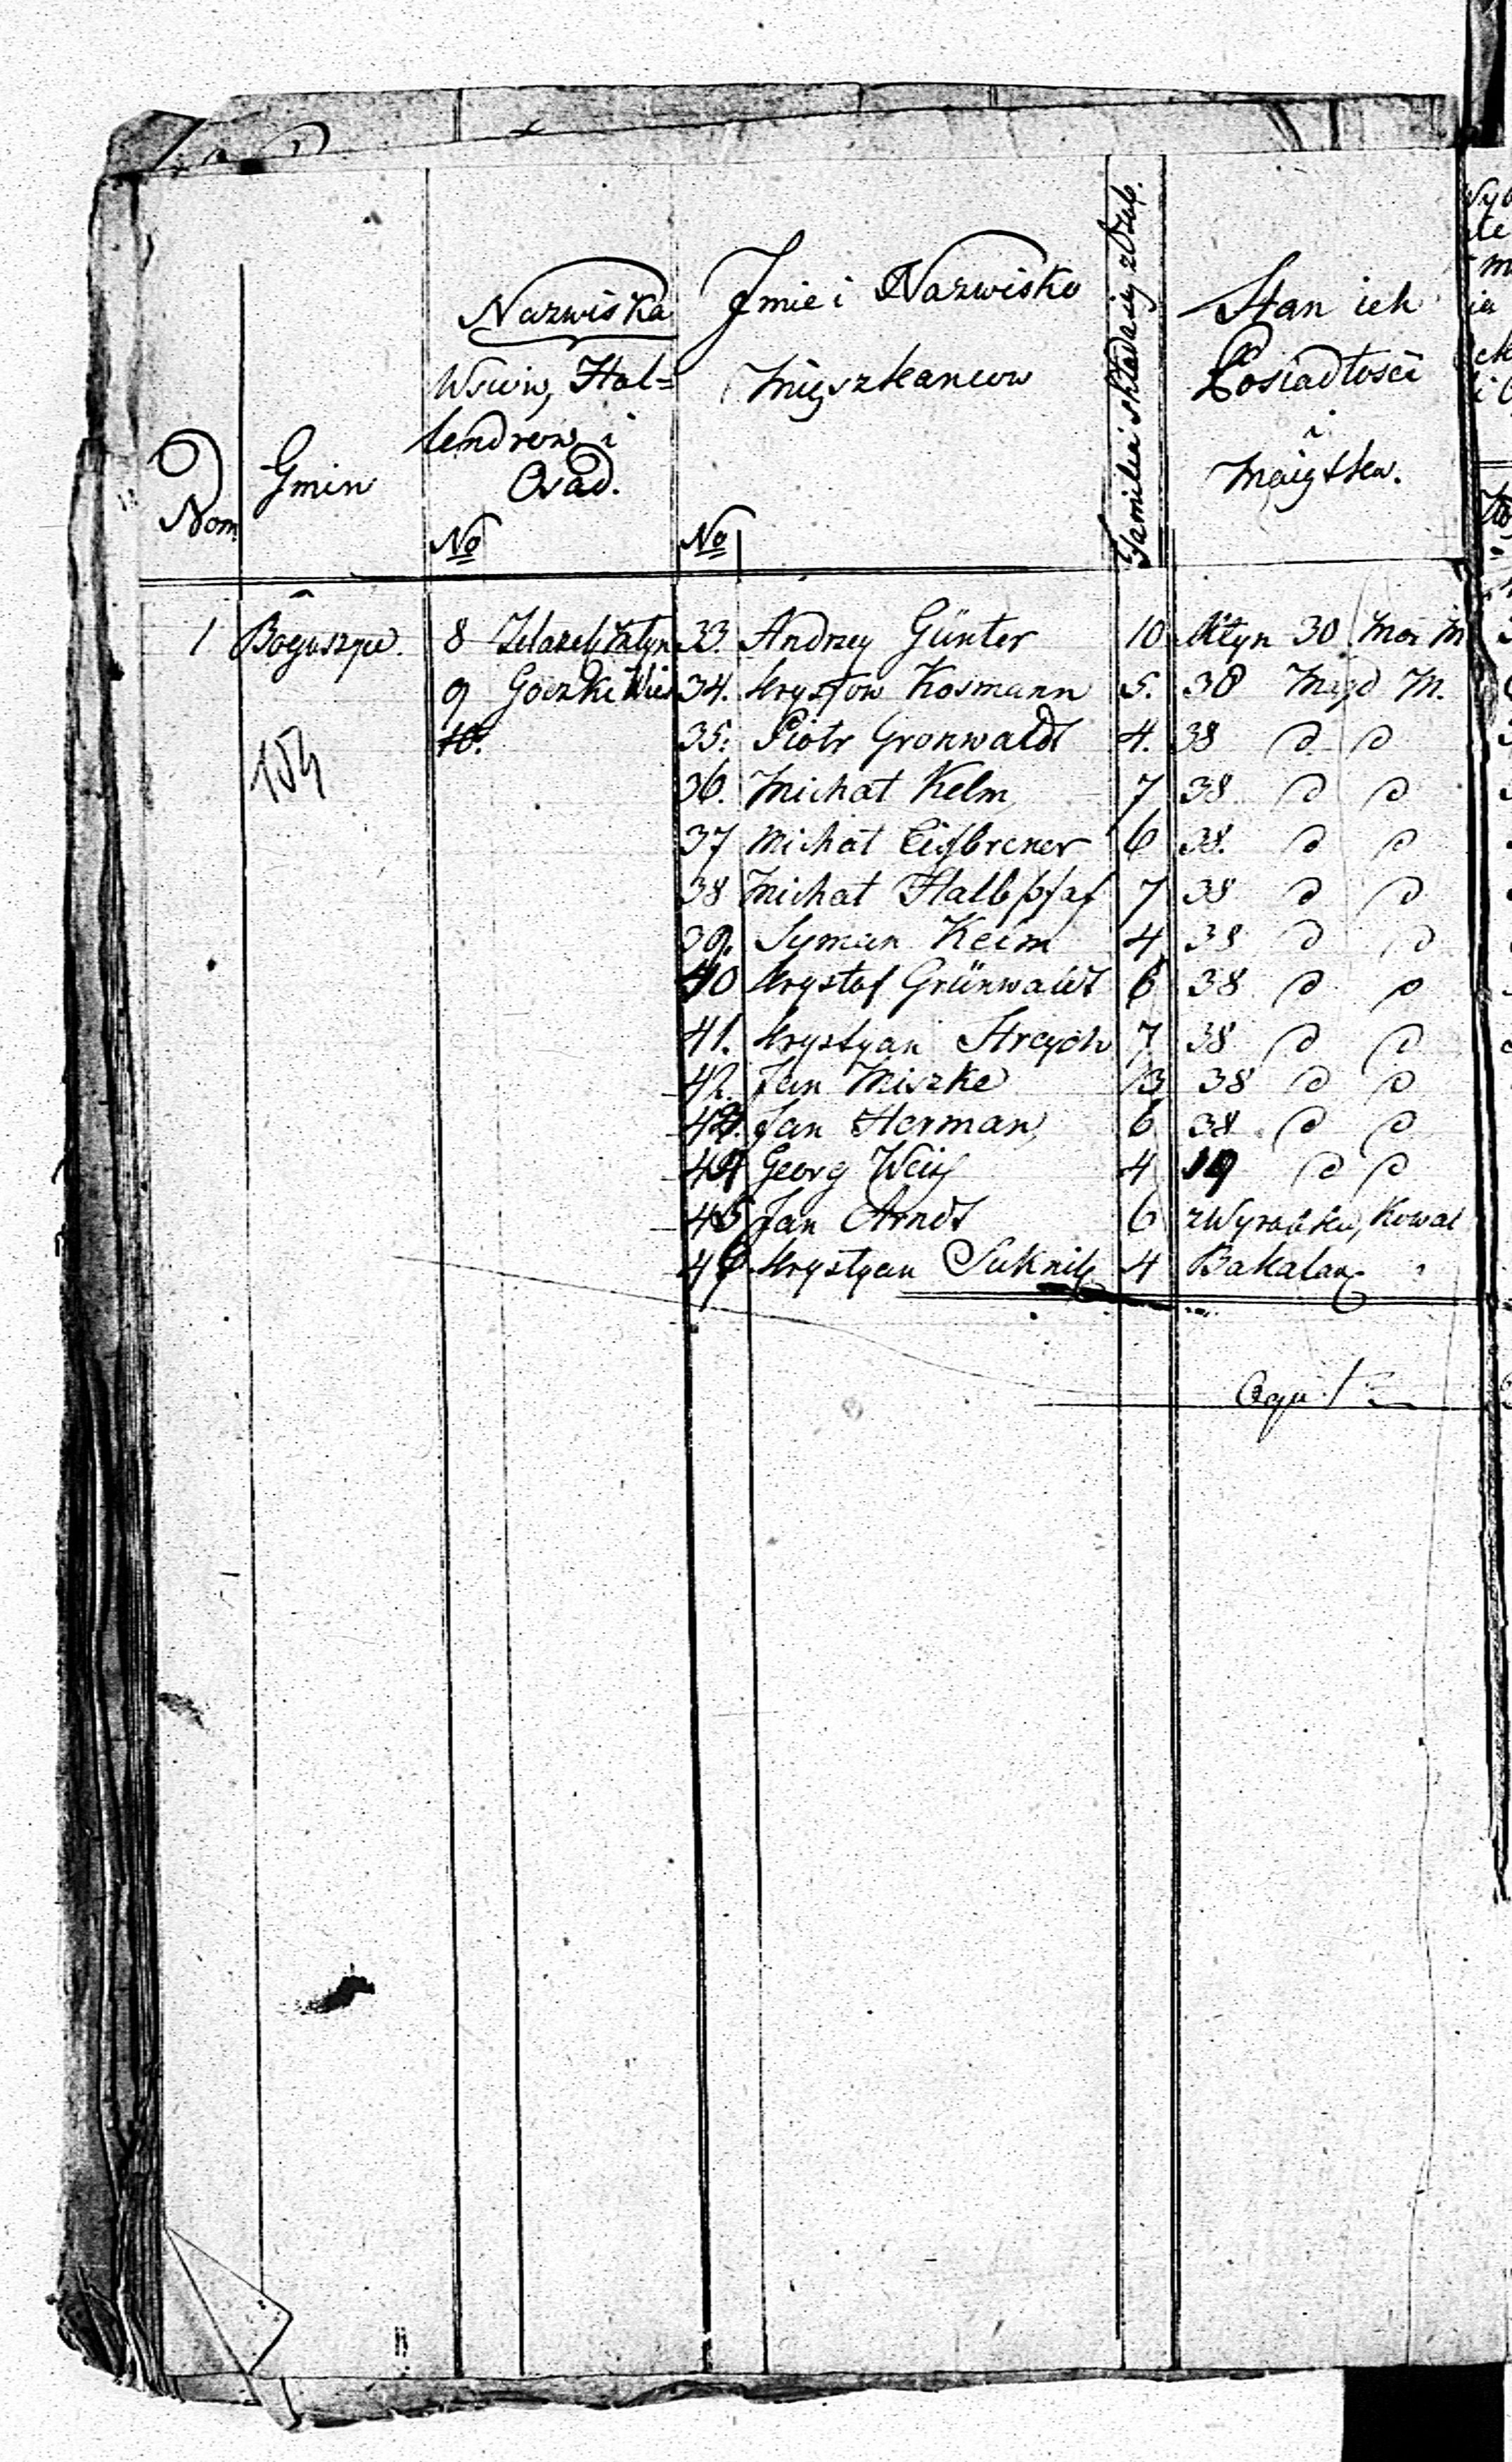 Nom
Gmin
Nazwiska
Wsiow, Hol=
lendrow i
Osad.
No
Jmie i Nazwisko
Mięszkancow
No
Familia składa się z Dusz.
Stan ich
Posiadłosci
i
Maiątku.
1 Boguszyce. 8 Młyn 33. Andrzey Günter 10 Młyn 30 Mor M
9 Goczki Wies 34. Krystow Kosmann 5. 38 Magd M.
10. 35: Piotr Gronwaldt 4. 38 D D
154 36. Michał Kelm 7 38 D D
37 Michał Eissbrener 6 38. D D
38 Michał Halbpfaf 7 38 D D
39. Syman Keim 4 38 D D
40 Krystof Grünwaldt 6 38 D D
41. Krystyan Streych 7 38 D D
42. Jan Miszke 13 38 D D
43. Jan Herman 6 38 D D
44 Georg Weiss 4 19 D D
45 Jan Arndt 6 z Wyrobku, Kowal
46 Krystyan 4 Bakalarz